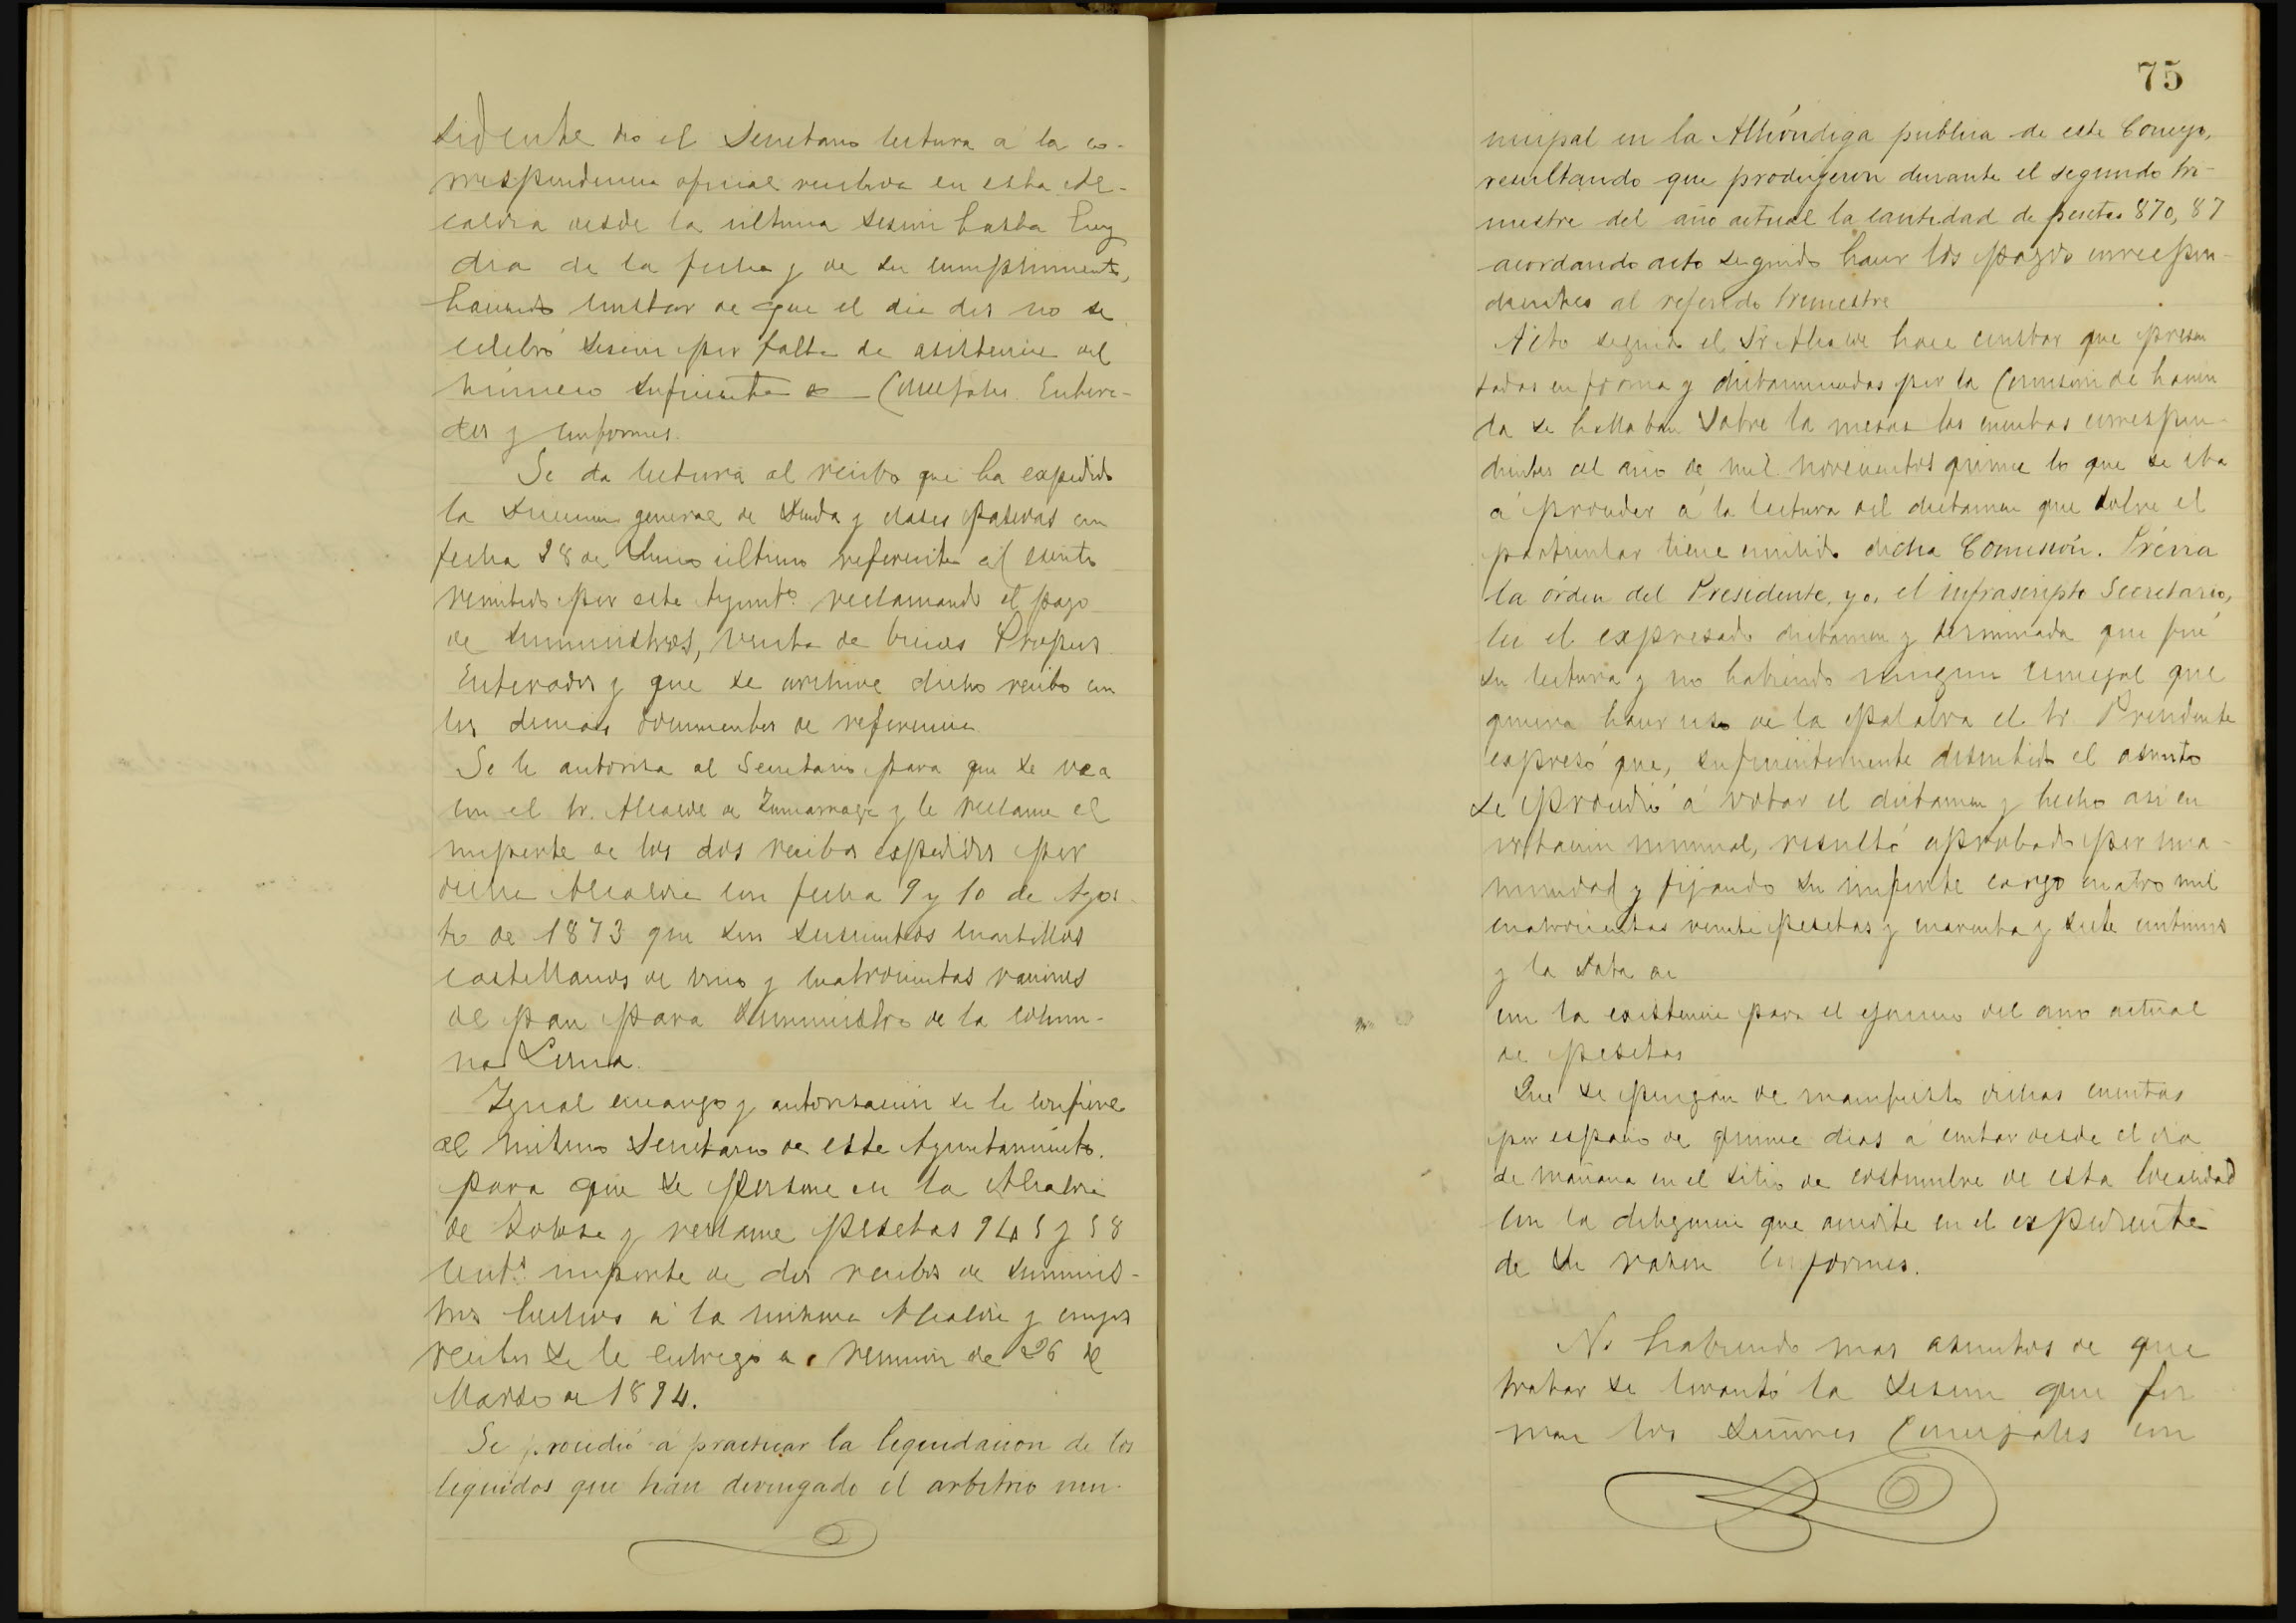 sidente dio el Secretario lectura á la co-
rrespondencia oficial recibida en esta Al-
caldia desde la ultima sesion hasta hoy
dia de la fecha y de su cumplimiento,
haciendo constar de que el dia dos no se
celebró sesion por falta de asistencia del
número suficiente de Concejales. Entera-
dos y conformes.
Se da lectura al recibo que ha expedido
la Direccion general de Deuda y clases pasivas con
fecha 28 de Junio ultimo referente al escrito
remitido por este Ayuntº reclamando el pago
de suministros, venta de bienes Propios.
Enterados y que se archive dicho recibo con
los demas documentos de referencia
Se le autoriza al Secretario para que se vea
con el Sr. Alcalde de Zumarraga y le reclame el
importe de los dos recibos expedidos por
dicha Alcaldia con fecha 9 y 10 de Agos-
to de 1873 que son cuartillos
castellanos de vino y cuatrocientas raciones
de pan para suministro de la colum-
na Lerma.
Igual encargo y autorizacion se le confiere
al mismo Secretario de este Ayuntamiento.
para que se persone en la Alcaldia
de Tolosa y reclame pesetas 945 y 58
centˢ importe de dos recibos de suminis-
tros hechos á la misma Alcaldia y cuyos
recibos se le entregó en reunion de 26 de
Marzo de 1894.
Se procedió á practicar la liquidacion de los
liquidos que han devengado el arbitrio mu-
75
nicipal en la Alhóndiga publica de este Concejo,
resultando que produgeron durante el segundo tri-
mestre del año actual la cantidad de pesetas 870,87
acordando acto seguido hacer los pagos correspon-
dientes al referido trimestre
Acto seguido el Sr Alcalde hace constar que presen
tadas en forma y dictaminadas por la Comision de hacien
da se hallaban sobre la mesa las cuentas correspon-
dientes al año de mil novecientos quince lo que se iba
á proceder á la lectura del dictamen que sobre el
particular tiene emitido dicha Comisión. Prévia
la órden del Presidente, yo, el infrascripto Secretario,
lei el expresado dictamen y terminada que fué
su lectura y no habiendo ningun concejal que
quiera hacer uso de la palabra el Sr. Presidente
expresó que, suficientemente discutido el asunto
se procedió á votar el dictamen y hecho asi en
votacion nominal, resultó aprobado por una-
nimidad y fijando su importe cargo cuatro mil
cuatrocientas veinte pesetas y cuarenta y siete centimos
y la data de
con la existencia para el ejercicio del año actual
de pesetas
Que se pongan de manifiesto dichas cuentas
por espacio de quince dias á contar desde el dia
de mañana en el sitio de costumbre de esta localidad
con la diligencia que acredite en el expediente
de su razon Conformes.
No habiendo mas asuntos de que
tratar se levantó la sesion que fir
man los Señores Concejales con